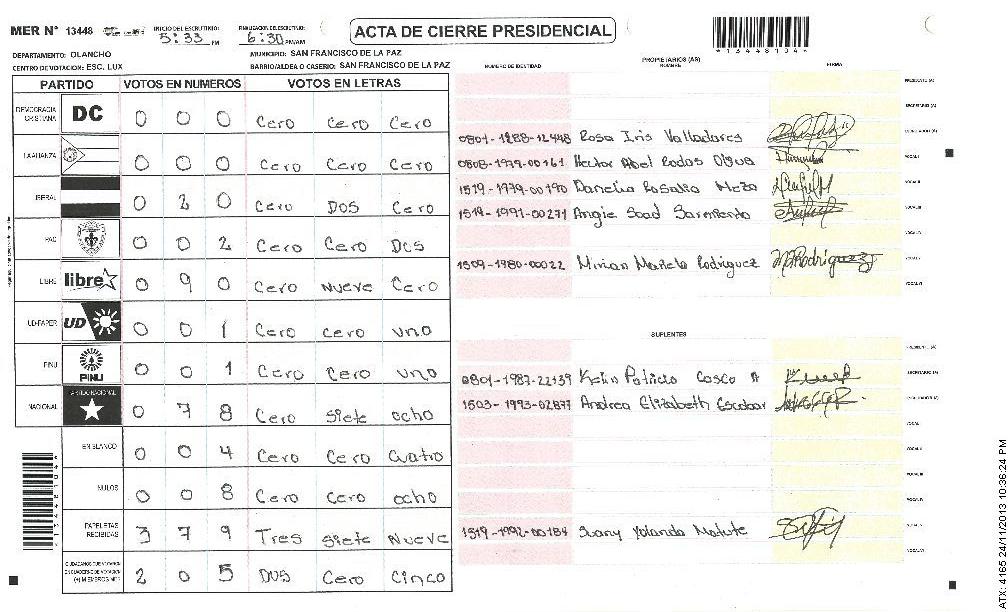 MER N° 13448 INICIO DEL ESCRUTINIO: 5:33 PM FINALIZACION DEL ESCRUTINIO: 6:30 PM/AM ACTA DE CIERRE PRESIDENCIAL
DEPARTAMENTO: OLANCHO MUNICIPIO: SAN FRANCISCO DE LA PAZ
CENTRO DE VOTACION: ESC. LUX BARRIO/ALDEA O CASERIO: SAN FRANCISCO DE LA PAZ
PARTIDO VOTOS EN NUMEROS VOTOS EN LETRAS
DEMOCRACIA CRISTIANA DC 0 0 0 Cero Cero Cero
LA ALIANZA 0 0 0 Cero Cero Cero
LIBERAL 0 2 0 Cero DOS Cero
PAC 0 0 2 Cero Cero Dos
LIBRE libre 0 9 0 Cero Nueve Cero
UD-FAPER UD 0 0 1 Cero cero uno
PINU PINU 0 0 1 Cero Cero uno
NACIONAL PARTIDO NACIONAL 0 7 8 Cero siete ocho
EN BLANCO 0 0 4 Cero Cero Cuatro
NULOS 0 0 8 Cero cero ocho
PAPELETAS RECIBIDAS 3 7 9 Tres siete Nueve
2 0 5 Dos Cero Cinco
NUMERO DE IDENTIDAD PROPIETARIOS (AS) NOMBRE FIRMA
PRESIDENTE (A)
SECRETARIO (A)
0801-1988-12448 Rosa Iris Valladares ESCRUTADOR (A)
0808-1979-00161 Hector Abel Rodas VOCAL I
1519-1979-00190 Rosalio Meza VOCAL II
1519-1991-00271 Angie Saad Sarmiento VOCAL III
VOCAL IV
1509-1980-00022 Mirian Mariela Rodriguez VOCAL V
VOCAL VI
SUPLENTES
PRESIDENTE (A)
0801-1987-22139 Kelin Patricio Cosco A SECRETARIO (A)
1503-1993-02877 Andrea Elizabeth Escobar ESCRUTADOR (A)
VOCAL I
VOCAL II
VOCAL III
VOCAL IV
1519-1992-00184 Suany Yolanda Matute VOCAL V
VOCAL VI
*13448104*
ATX: 4165 24/11/2013 10:36:24 PM